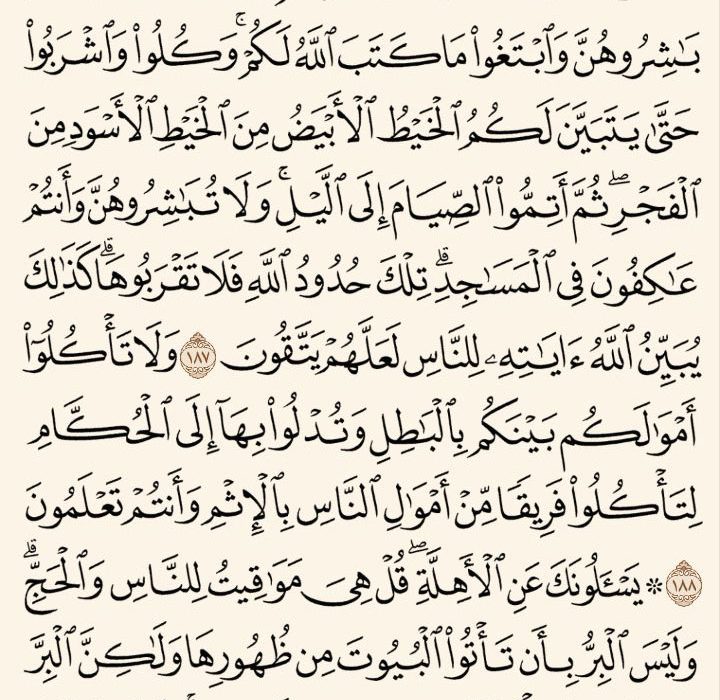 بَـٰشِرُوهُنَّ وَٱبۡتَغُواْ مَا كَتَبَ ٱللَّهُ لَكُمۡۚ وَكُلُواْ وَٱشۡرَبُواْ
حَتَّىٰ يَتَبَيَّنَ لَكُمُ ٱلۡخَيۡطُ ٱلۡأَبۡيَضُ مِنَ ٱلۡخَيۡطِ ٱلۡأَسۡوَدِ مِنَ
ٱلۡفَجۡرِۖ ثُمَّ أَتِمُّواْ ٱلصِّيَامَ إِلَى ٱلَّيۡلِۚ وَلَا تُبَـٰشِرُوهُنَّ وَأَنتُمۡ
عَـٰكِفُونَ فِي ٱلۡمَسَـٰجِدِۗ تِلۡكَ حُدُودُ ٱللَّهِ فَلَا تَقۡرَبُوهَاۗ كَذَٰلِكَ
يُبَيِّنُ ٱللَّهُ ءَايَـٰتِهِۦ لِلنَّاسِ لَعَلَّهُمۡ يَتَّقُونَ ١٨٧ وَلَا تَأۡكُلُوٓاْ
أَمۡوَٰلَكُم بَيۡنَكُم بِٱلۡبَـٰطِلِ وَتُدۡلُواْ بِهَآ إِلَى ٱلۡحُكَّامِ
لِتَأۡكُلُواْ فَرِيقٗا مِّنۡ أَمۡوَٰلِ ٱلنَّاسِ بِٱلۡإِثۡمِ وَأَنتُمۡ تَعۡلَمُونَ
١٨٨ ۞ يَسۡـَٔلُونَكَ عَنِ ٱلۡأَهِلَّةِۖ قُلۡ هِيَ مَوَٰقِيتُ لِلنَّاسِ وَٱلۡحَجِّۗ
وَلَيۡسَ ٱلۡبِرُّ بِأَن تَأۡتُواْ ٱلۡبُيُوتَ مِن ظُهُورِهَا وَلَـٰكِنَّ ٱلۡبِرَّ